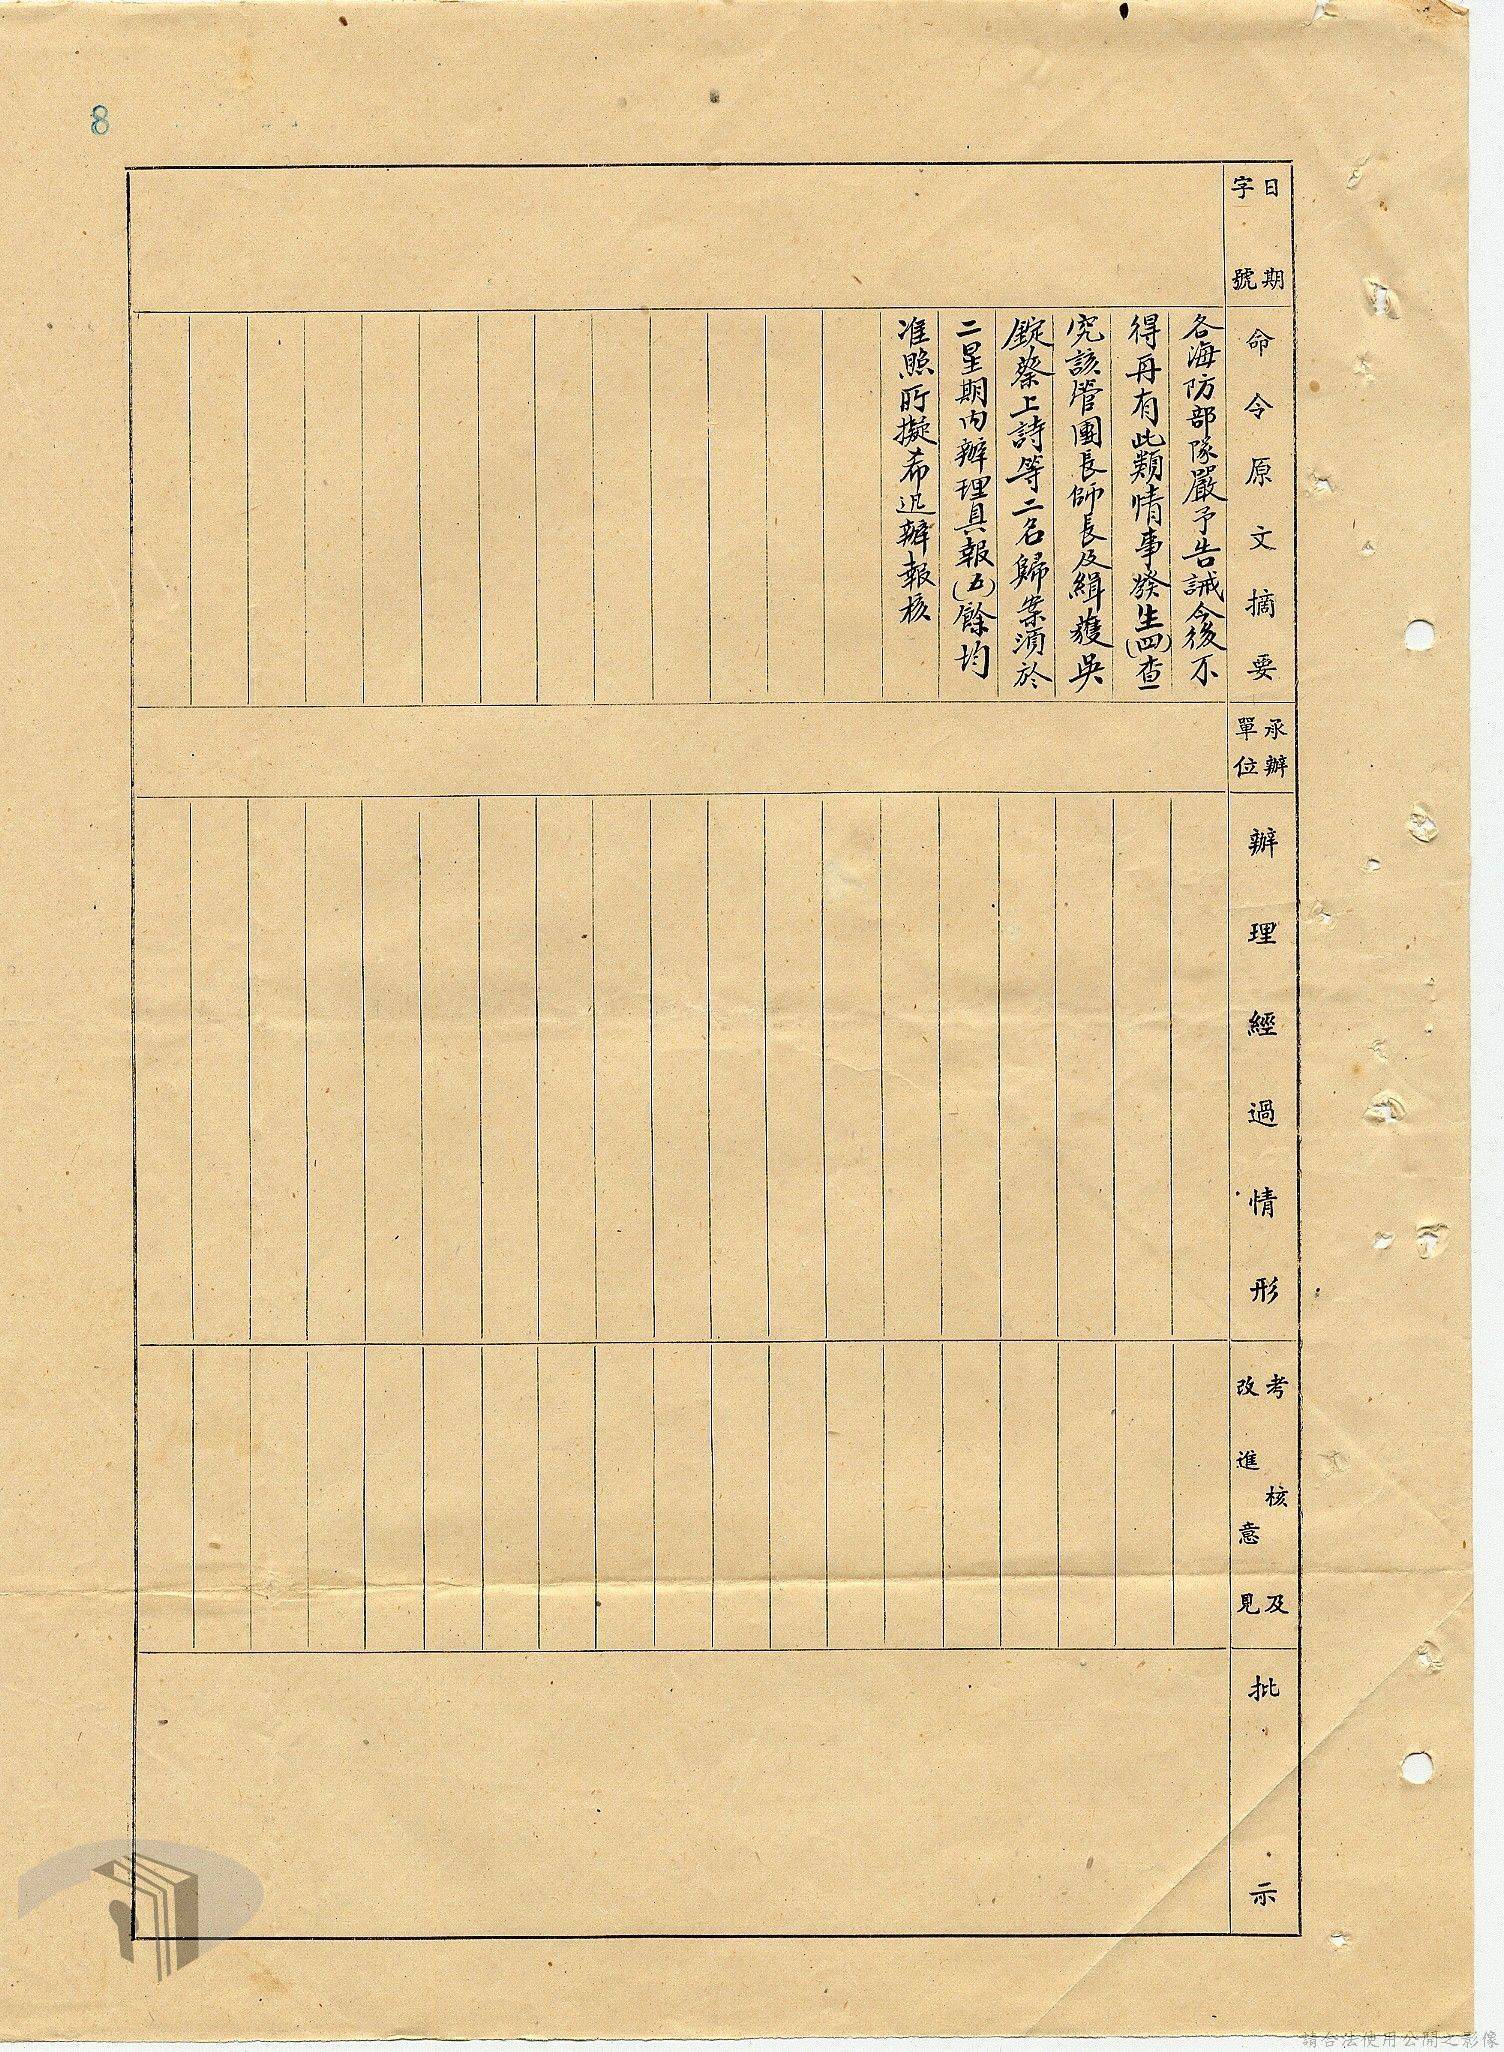 8
日期
字號
命令原文摘要
承辦
單位
辦理經過情形
考核及
改進意見
批示
各海防部隊嚴予告誡今後不
得再有此類情事發生(四)查
究該管團長師長及緝獲吳
錠蔡上詩等二名歸案須於
二星期内辦理具報(五)餘均
准照所擬希迅辦報核
請合法使用公開之影像